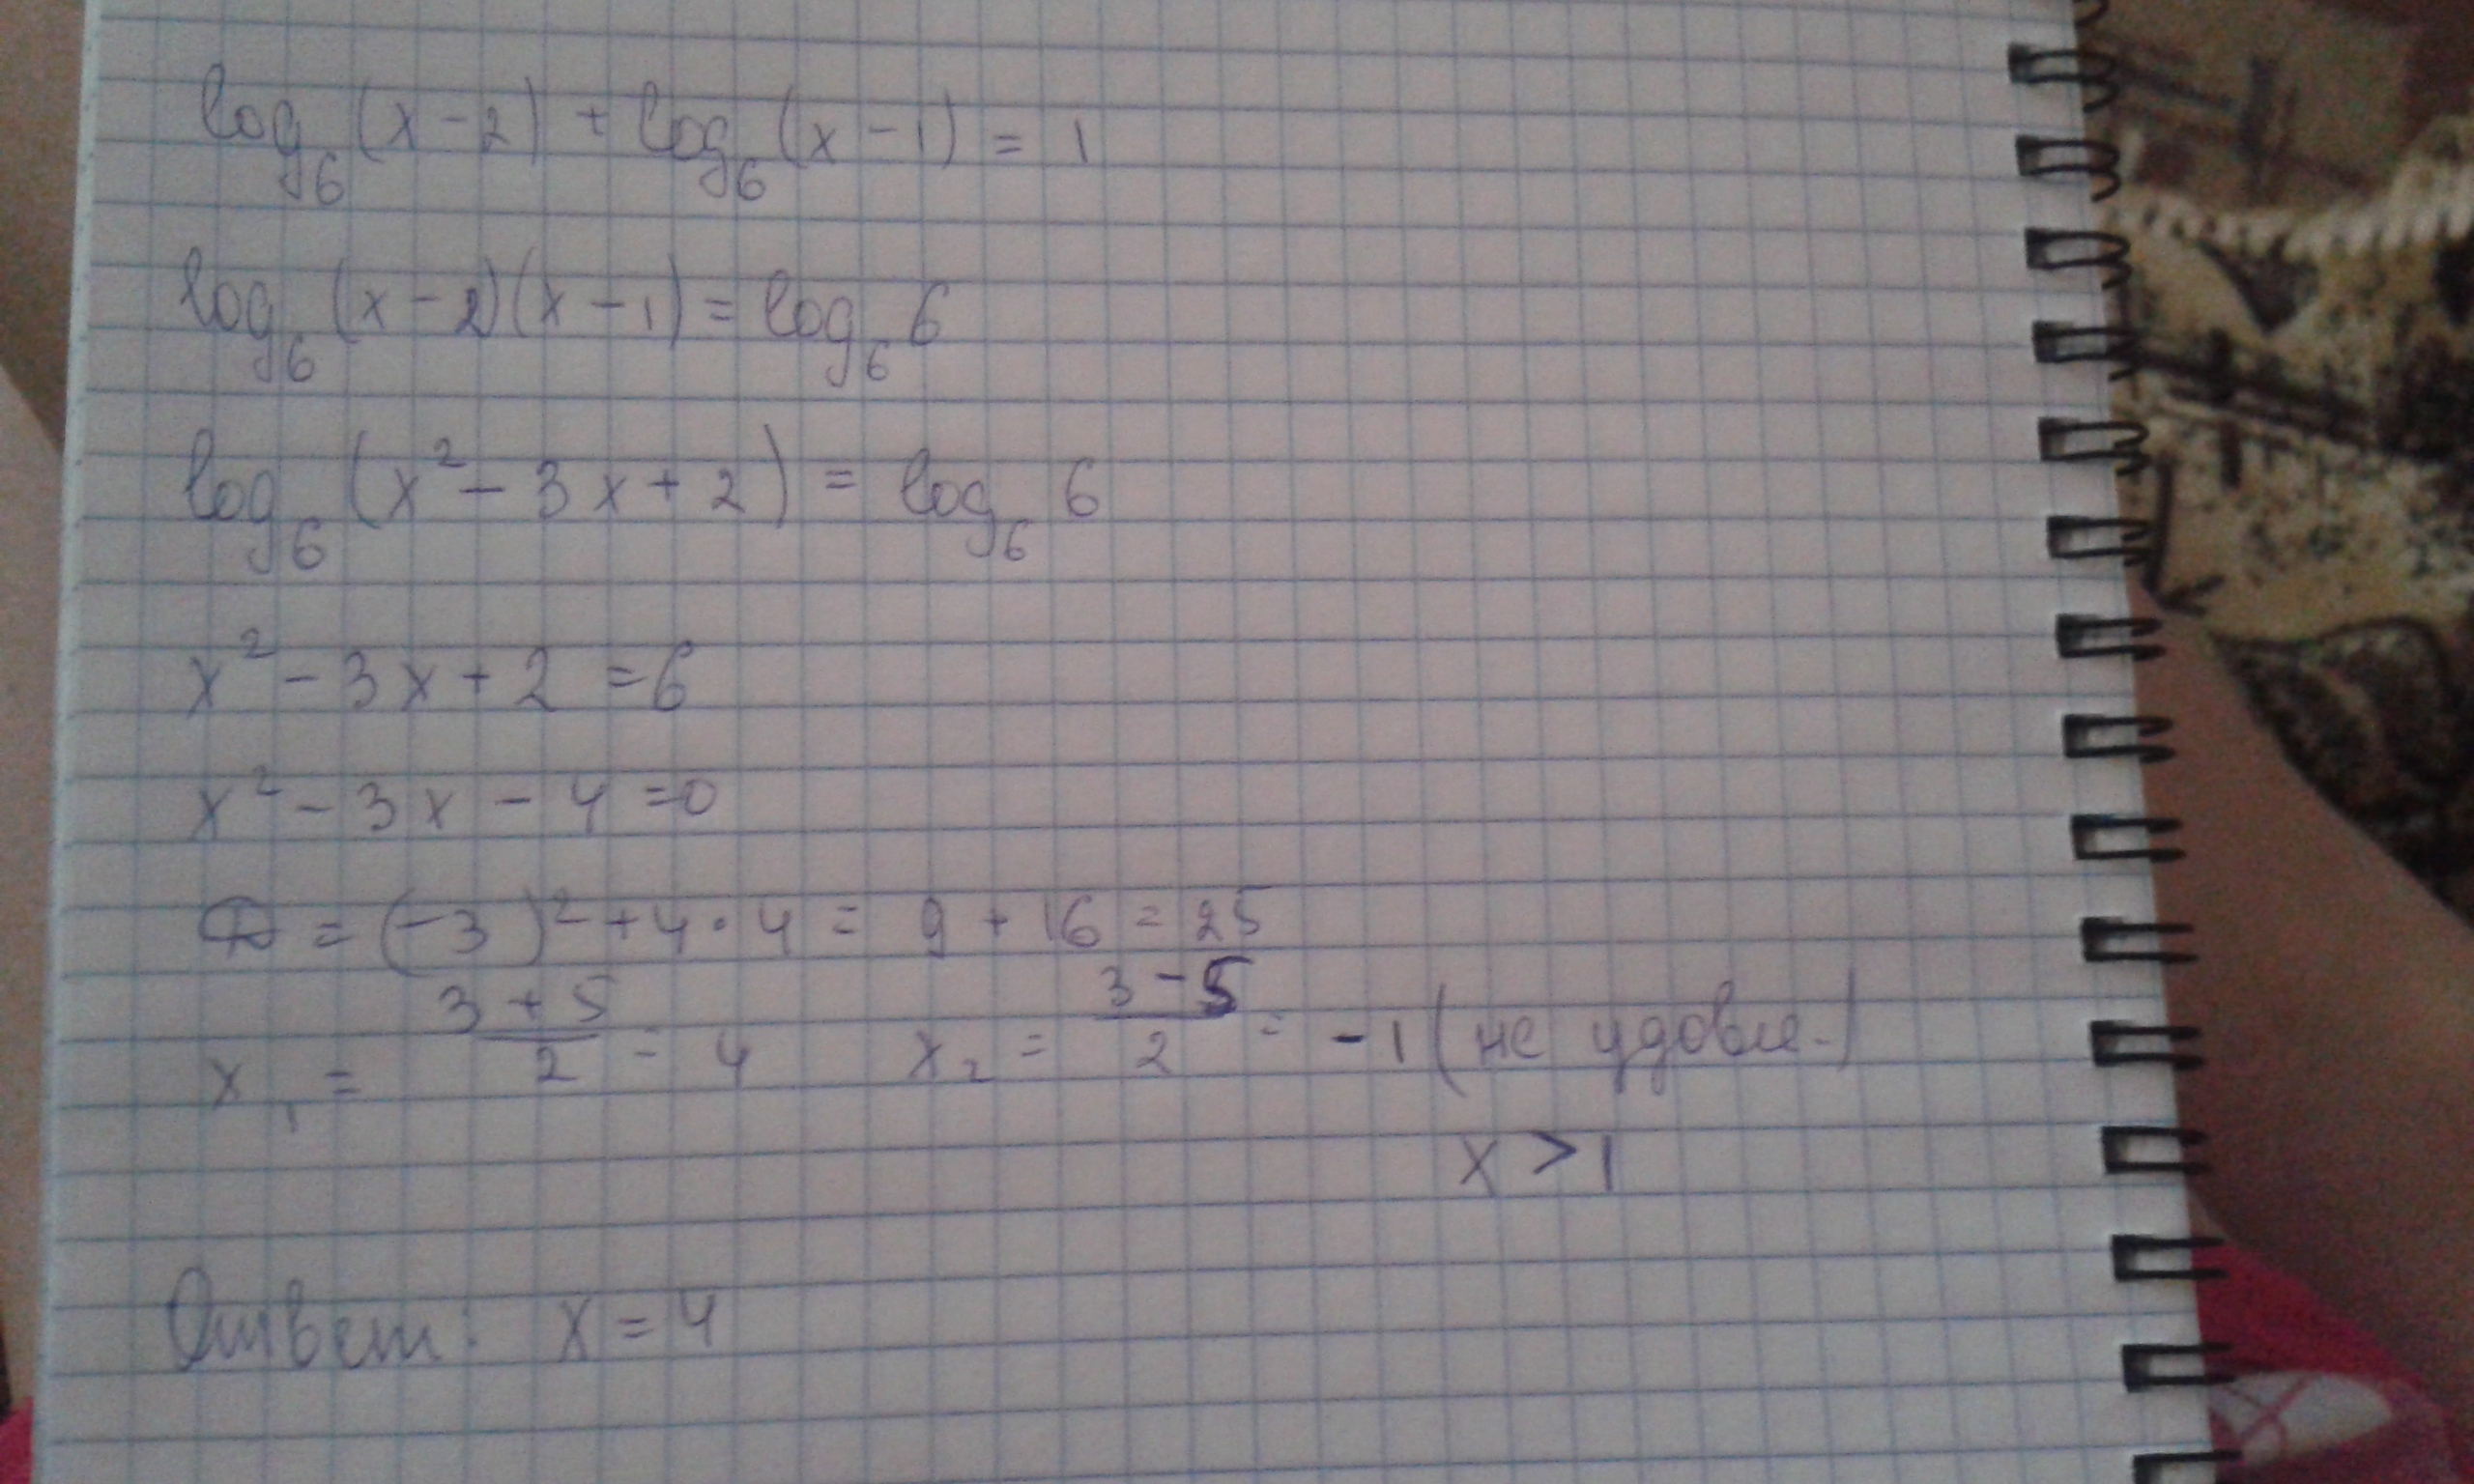 log₆(x-2) + log₆(x-1) = 1
log₆(x-2)(x-1) = log₆6
log₆(x²-3x+2) = log₆6
x²-3x+2=6
x²-3x-4=0
D=(-3)²+4·4=9+16=25
x₁ = (3+5)/2 = 4 x₂ = (3-5)/2 = -1 (не удовле.)
x > 1
Ответ: x=4